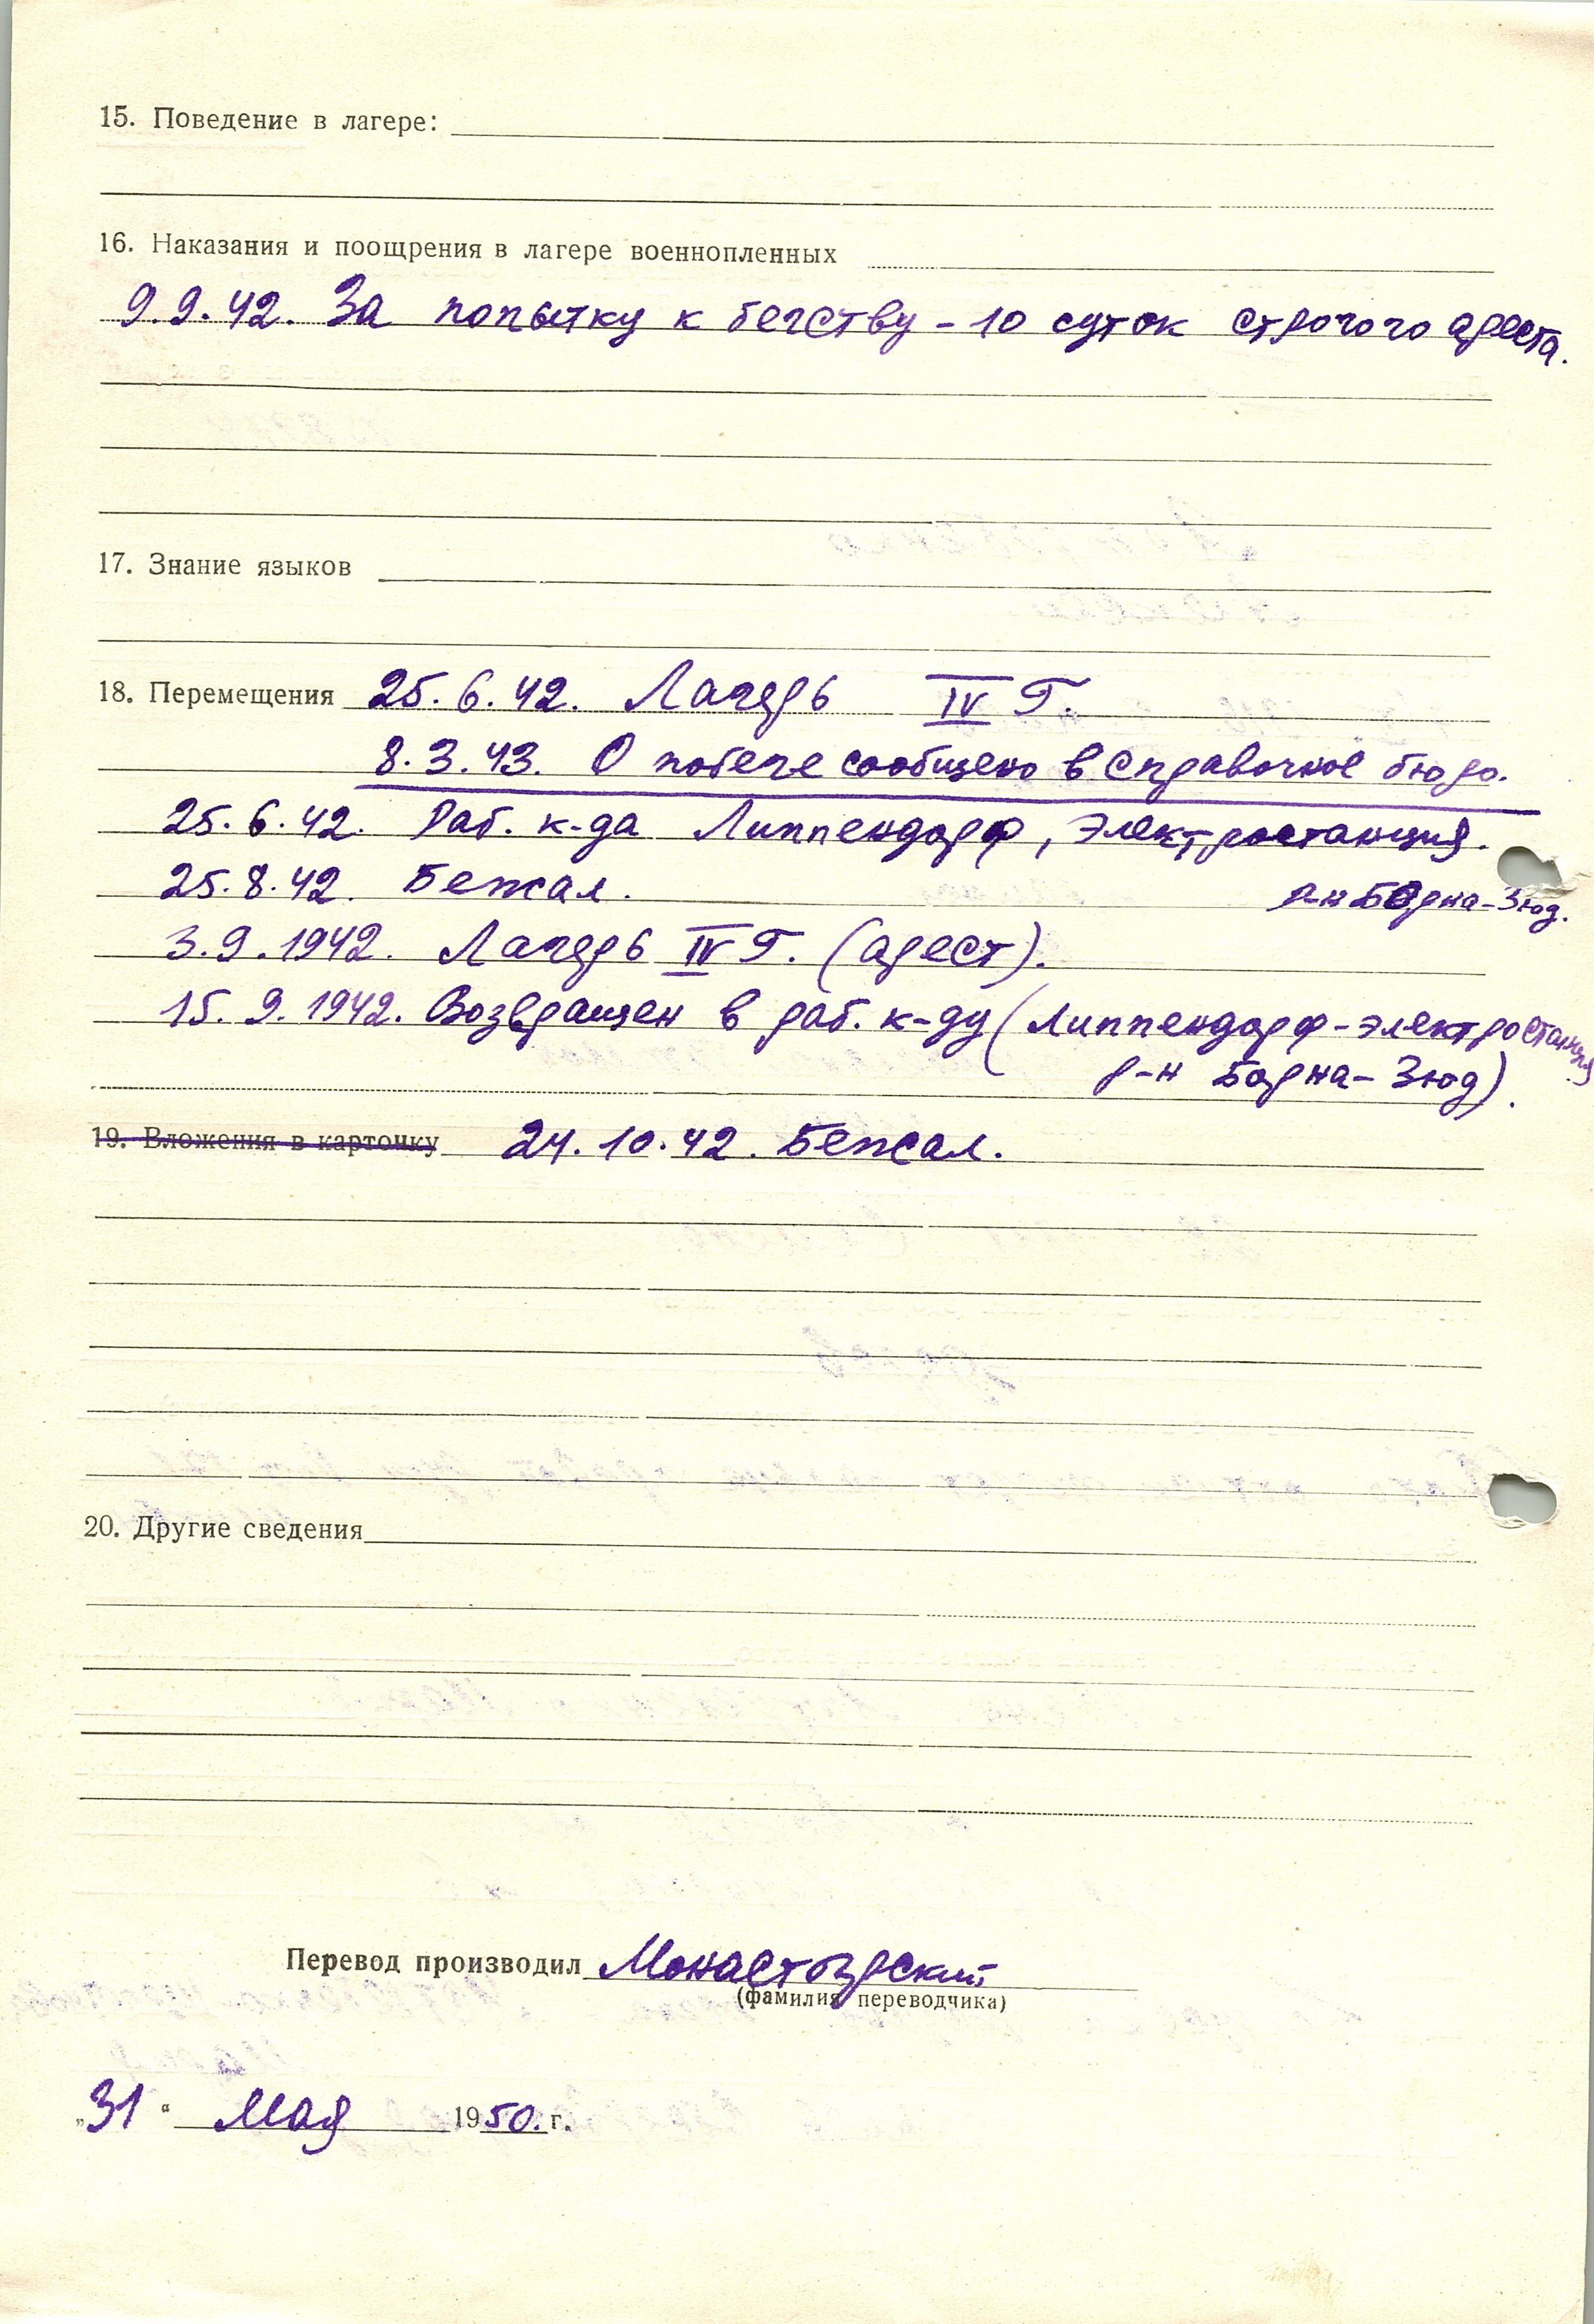 15. Поведение в лагере:
16. Наказания и поощрения в лагере военнопленных
9.9.42. За попытку к бегству – 10 суток строгого ареста.
17. Знание языков
18. Перемещения 25.6.42. Лагерь IV Г.
8.3.43. О побеге сообщено в справочное бюро.
25.6.42. Раб. к-да Липпендорф, электростанция.
р-н Борна-Зюд.
25.8.42. Бежал.
3.9.1942. Лагерь IV Г. (арест).
15.9.1942. Возвращен в раб. к-ду (Липпендорф-электростанция
р-н Борна-Зюд).
19. Вложения в карточку 24.10.42. Бежал.
20. Другие сведения
Перевод производил Монастырский
(фамилия переводчика)
„31“ Мая 1950. г.